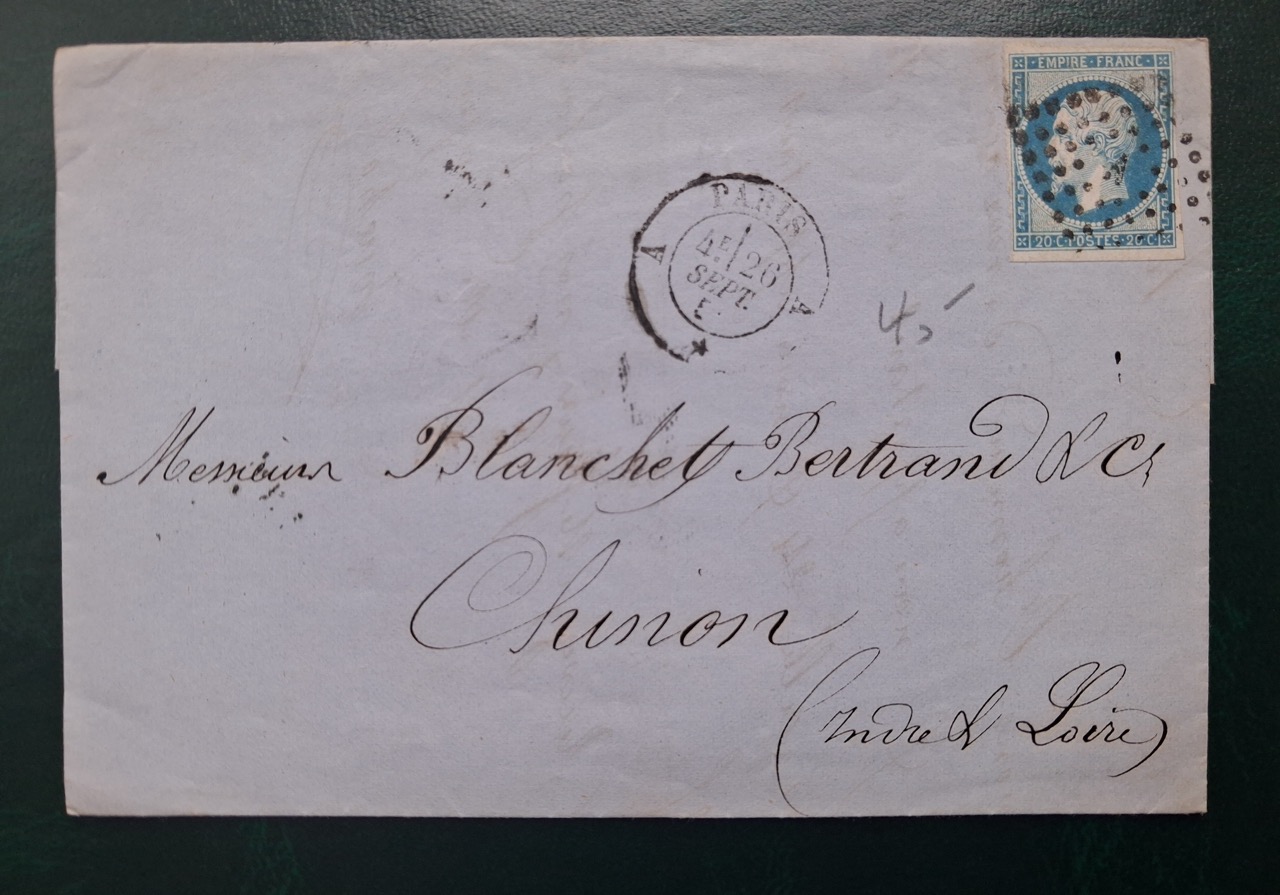 EMPIRE · FRANC ·
20 · C · POSTES · 20 · C ·
PARIS
A A
4E 26
SEPT.
5
45
Messieurs Blanchet Bertrand & Cie
Chinon
(Indre & Loire)